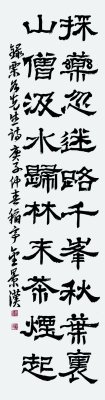 採藥忽迷路千峯秋葉裏
山僧汲水歸林末茶煙起
錄栗谷先生詩庚子仲春稻亭金景漢